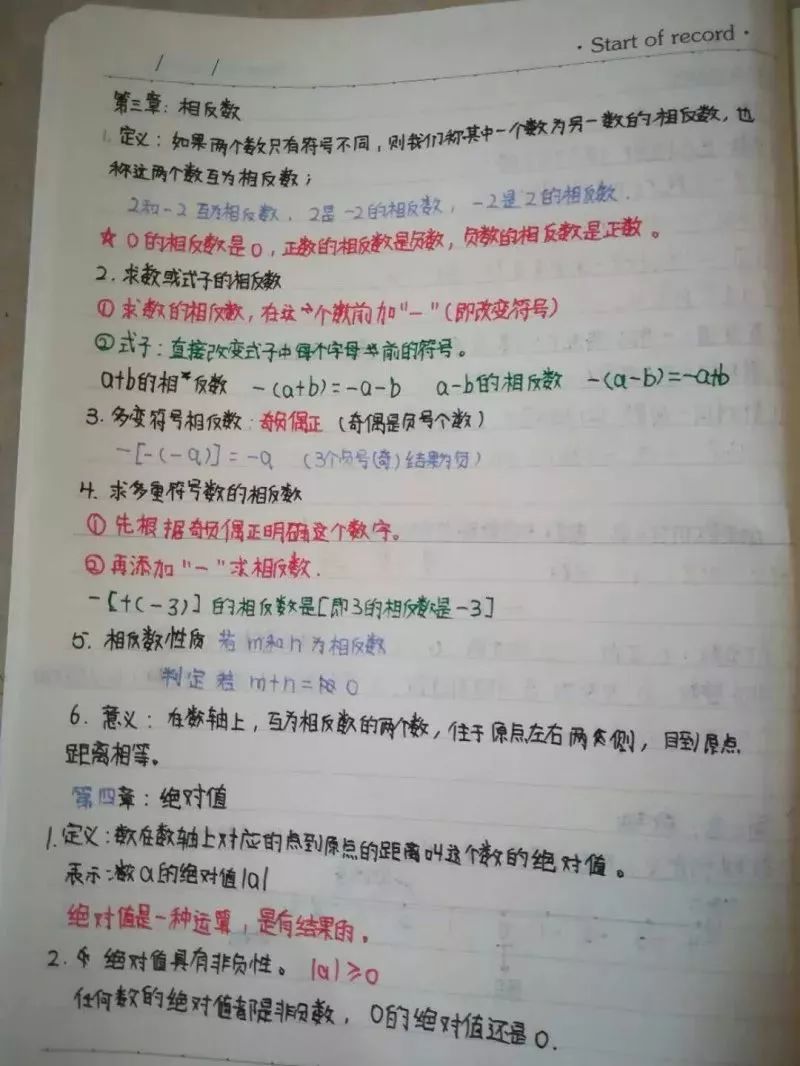 · Start of record ·
/ /
第三章：相反数
1. 定义：如果两个数只有符号不同，则我们称其中一个数为另一数的相反数，也
称这两个数互为相反数；
2和-2 互为相反数，2是-2的相反数，-2是2的相反数.
★ 0的相反数是0，正数的相反数是负数，负数的相反数是正数。
2. 求数或式子的相反数
① 求数的相反数，在这个数前加"一"(即改变符号)
②式子：直接改变式子中每个字母当前的符号。
a+b的相反数 -(a+b)=-a-b a-b的相反数 -(a-b)=-a+b
3. 多变符号相反数：奇负偶正 (奇偶是负号个数)
-[-(-a)]=-a (3个负号(奇)结果为负)
4. 求多重符号数的相反数
① 先根据奇负偶正明确这个数字。
② 再添加"一"求相反数.
-[+(-3)] 的相反数是[即3的相反数是-3]
5. 相反数性质 若m和n为相反数
判定 若 m+n= 0
6. 意义：在数轴上，互为相反数的两个数，住于原点左右两侧，目到原点
距离相等。
第四章：绝对值
1. 定义：数在数轴上对应的点到原点的距离叫这个数的绝对值。
表示：数a的绝对值|a|
绝对值是一种运算，是有结果的。
2. 绝对值具有非负性。|a|≥0
任何数的绝对值都是非负数，0的绝对值还是0.